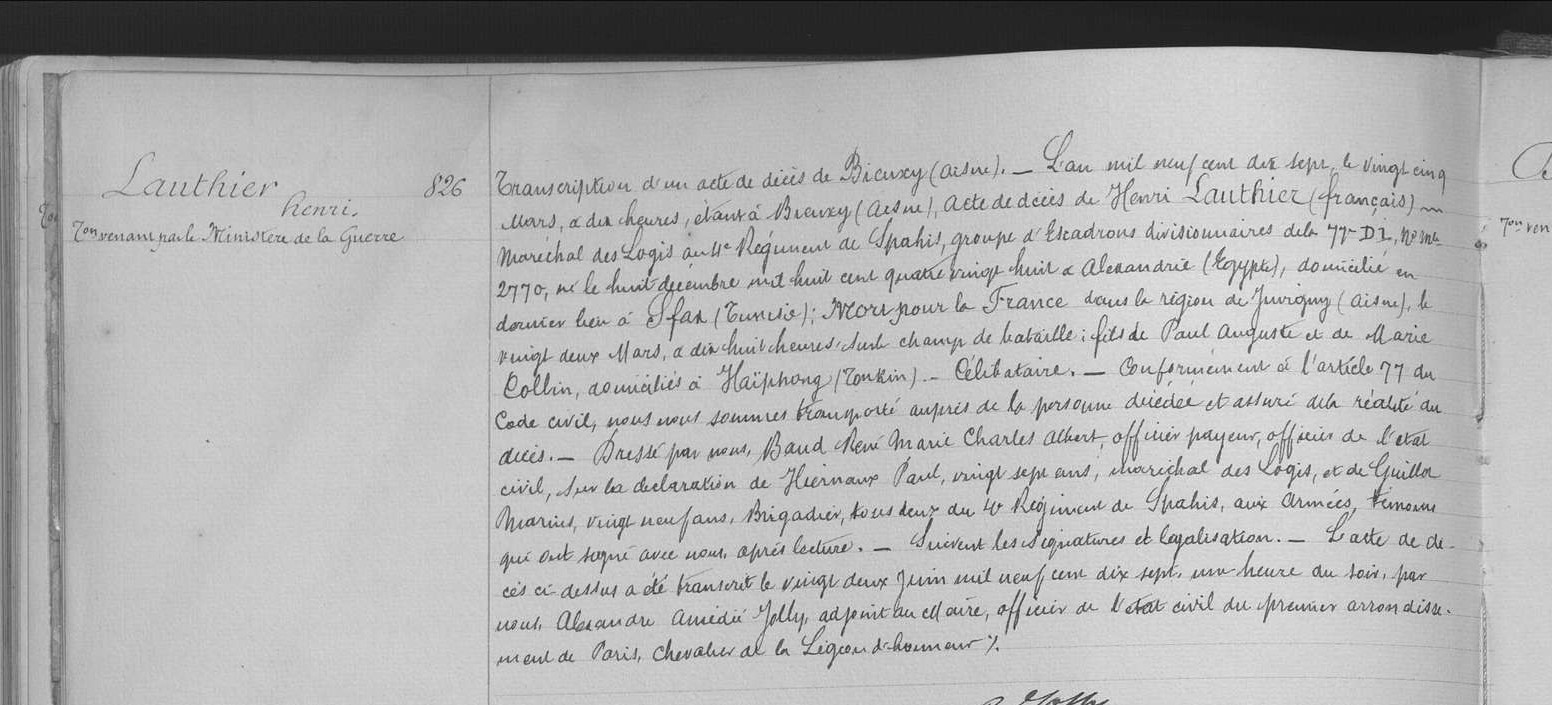 Lauthier
henri.
826
Ton venant par le Ministère de la Guerre
Transcription d'un acte de décès de Bieuxy (Aisne). — L'an mil neuf cent dix sept, le vingt cinq
Mars, à dix heures, étant à Bieuxy (Aisne), Acte de décès de Henri Lauthier (français)
Maréchal des Logis au 4e Régiment de Spahis, groupe d'Escadrons divisionnaires de la 77e D I, No Mle
2770, né le huit décembre mil huit cent quatre vingt huit à Alexandrie (Egypte), domicilié en
dernier lieu à Sfax (Tunisie); Mort pour la France dans la région de Juvigny (Aisne), le
vingt deux Mars, à dix huit heures, sur le champ de bataille; fils de Paul Auguste et de Marie
Collin, domiciliés à Haïphong (Tonkin) — Célibataire. — Conformément à l'article 77 du
Code civil, nous nous sommes transporté auprès de la personne décédée et assuré de la réalité du
décès. — Dressé par nous, Baud René Marie Charles Albert, officier payeur, officier de l'état
civil, sur la déclaration de Hiernaux Paul, vingt sept ans, maréchal des Logis, et de Guillot
Marius, vingt neuf ans, Brigadier, tous deux du 4e Régiment de Spahis, aux Armées, témoins
qui ont signé avec nous, après lecture. — Suivent les Signatures et légalisation. — L'acte de dé-
cès ci-dessus a été transcrit le vingt deux Juin mil neuf cent dix sept, une heure du soir, par
nous, Alexandre Amédée Jolly, adjoint au Maire, officier de l'état civil du premier arrondisse-
ment de Paris, Chevalier de la Légion d'honneur ./.
Ton ven